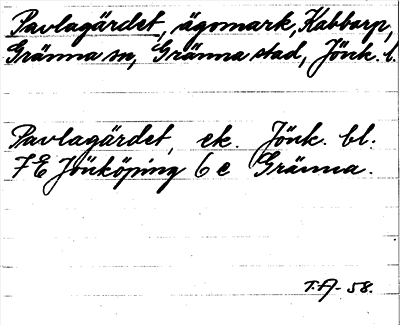 Pavlagärdet, ägomark, Kabbarp,
Gränna sn, Gränna stad, Jönk. l.
Pavlagärdet, ek. Jönk. bl.
7E Jönköping 6e Gränna.
T.A-58.